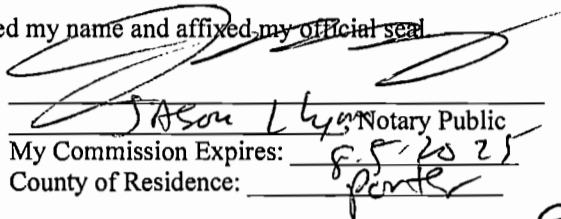 ed my name and affixed my official seal.
Jason L Lynn, Notary Public
My Commission Expires: 8.5.2025
County of Residence: Porter